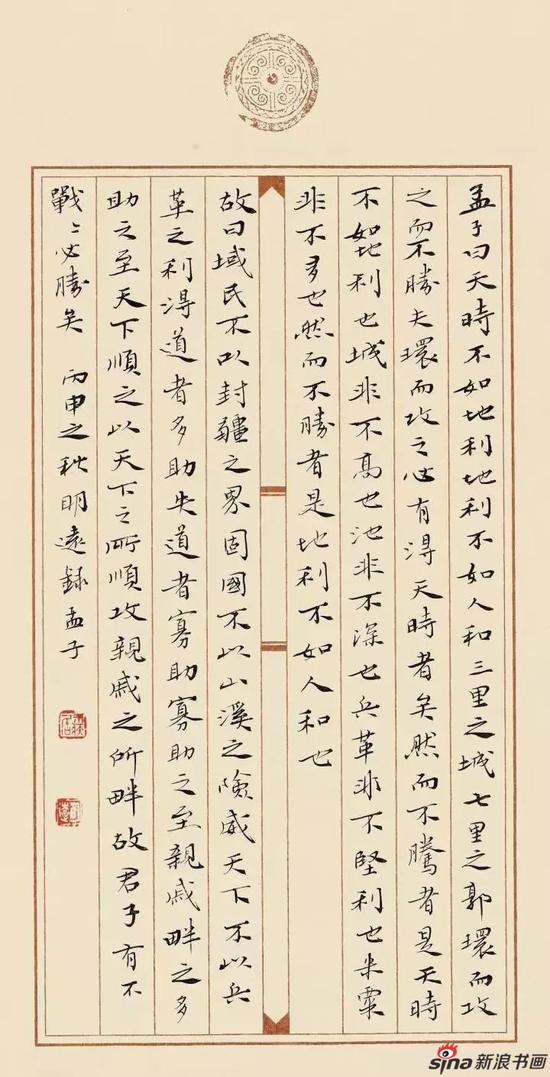 孟子曰天時不如地利地利不如人和三里之城七里之郭環而攻
之而不勝夫環而攻之必有得天時者矣然而不騰者是天時
不如地利也城非不高也池非不深也兵革非不堅利也米粟
非不多也然而不勝者是地利不如人和也
故曰域民不以封疆之界固國不以山溪之險威天下不以兵
革之利得道者多助失道者寡助寡助之至親戚畔之多
助之至天下順之以天下之所順攻親戚之所畔故君子有不
戰〻必勝矣 丙申之秋明遠錄孟子
sina 新浪书画